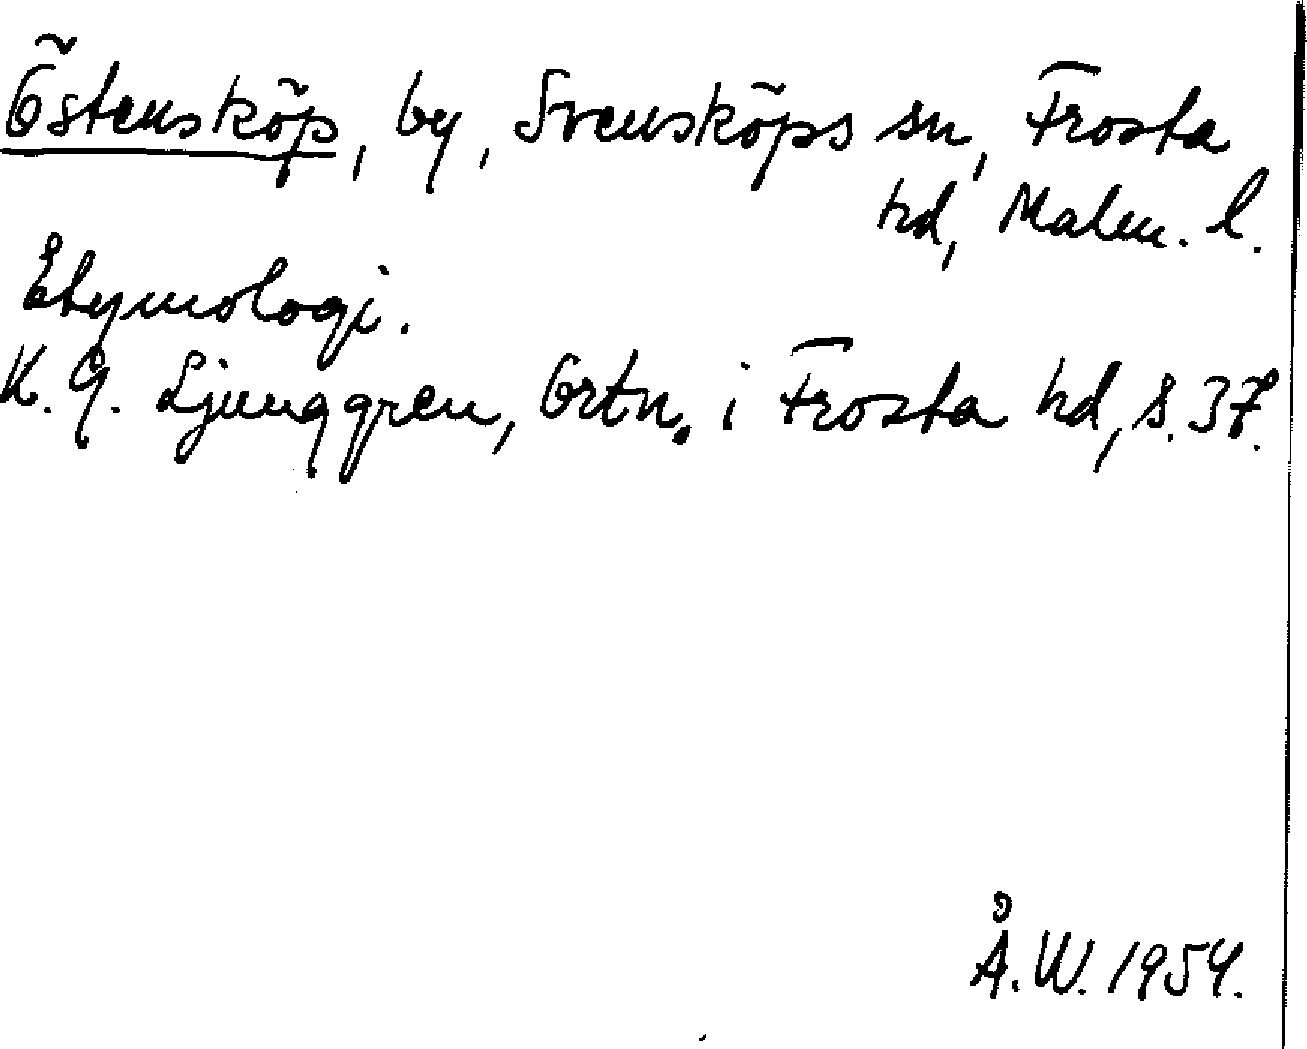 Östensköp, by, Svensköps sn, Frosta
hd, Malm. l.
Etymologi.
K. G. Ljunggren, Ortn. i Frosta hd, s. 37.
Å. W. 1954.